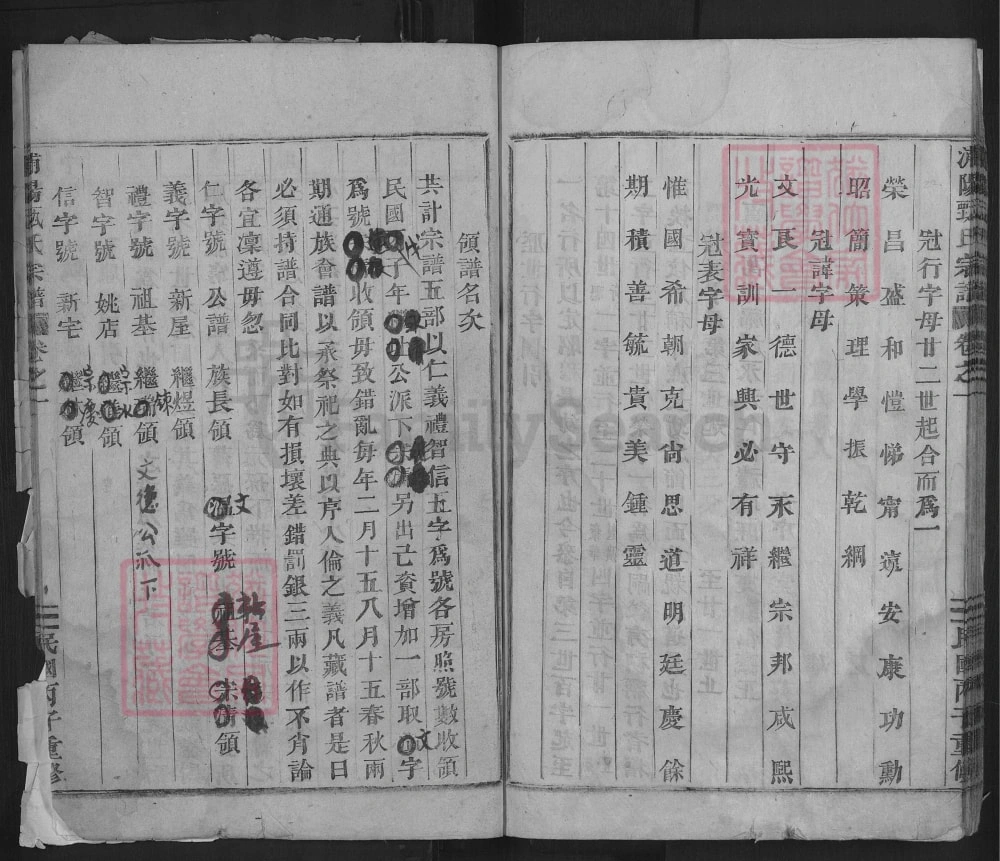 冠行字母廿二世起合而爲一
榮昌盛和愷悌甯竟安康功勳
昭簡策理學振乾綱
冠諱字母
文良一德世守永繼宗邦咸熙
光實訓家興必有祥
冠表字母
惟國希朝克尙思道明廷慶餘
期積善毓貴美鍾靈
浦陽甄氏宗譜卷之一
民國丙子重修
領譜名次
共計宗譜五部以仁義禮智信五字爲號各房照號數收領
民國子年公派下另出己資增加一部取文字
爲號收領毋致錯亂每年二月十五八月十五春秋兩
期通族會譜以承祭祀之典以亨人倫之義凡藏譜者是日
必須持譜合同比對如有損壞差錯罰銀三兩以作不肖論
各宜凜遵毋忽
仁字號 公譜 族長領 文字號 新屋 領
義字號 新屋 繼煜領
禮字號 祖基 繼領 文德公派下
智字號 姚店 領
信字號 新宅 領
浦陽甄氏宗譜卷之一
民國丙子重修